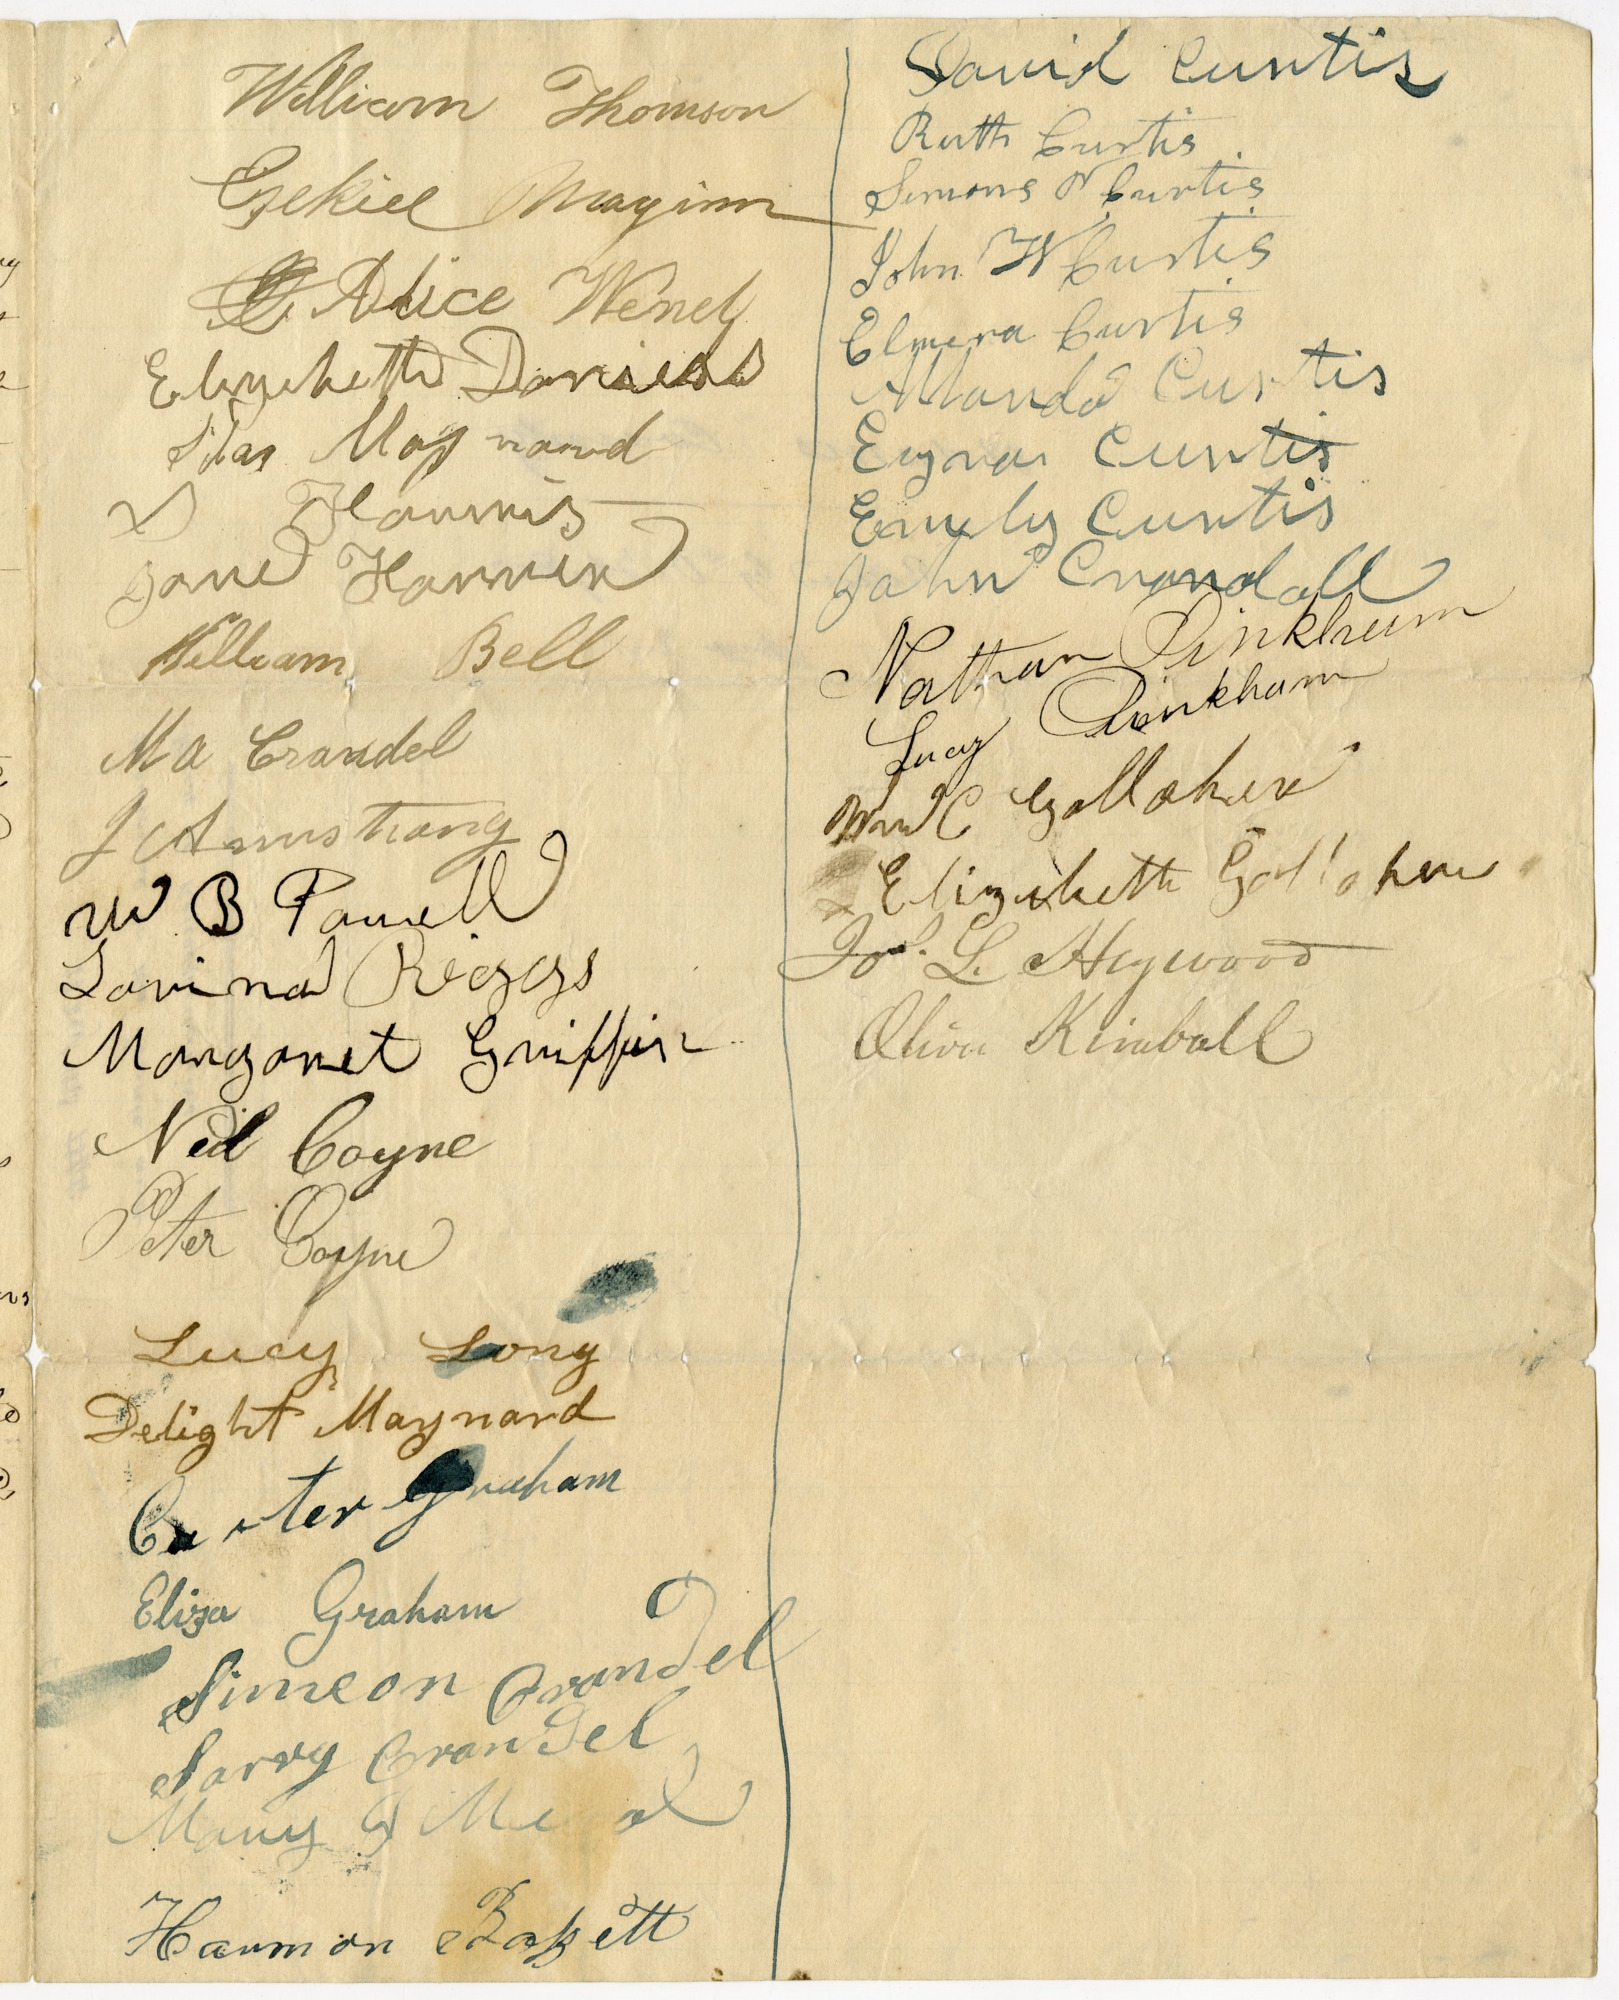 William Thomson
Ezekiel Maginn
Alice Wendy
Elizebeth Daniels
Silas Maynard
Harris
Jane Harris
William Bell
M A Crandel
J C Armstrong
W B Powell
Lovina Riggs
Margaret Griffin
Neil Coyne
Peter Coyne
Lucy Long
Delight Maynard
Carter Graham
Eliza Graham
Simeon Crandel
Sarry Crandel
Mary
Harmon Bassett
David Curtis
Ruth Curtis
Simons Curtis
John W Curtis
Elmera Curtis
Manda Curtis
Ezra Curtis
Emely Curtis
John Crandall
Nathan Pinkham
Lucy Pinkham
Wm C Gallaher
Elizebeth Gallaher
Jos. L. Heywood
Olive Kimball